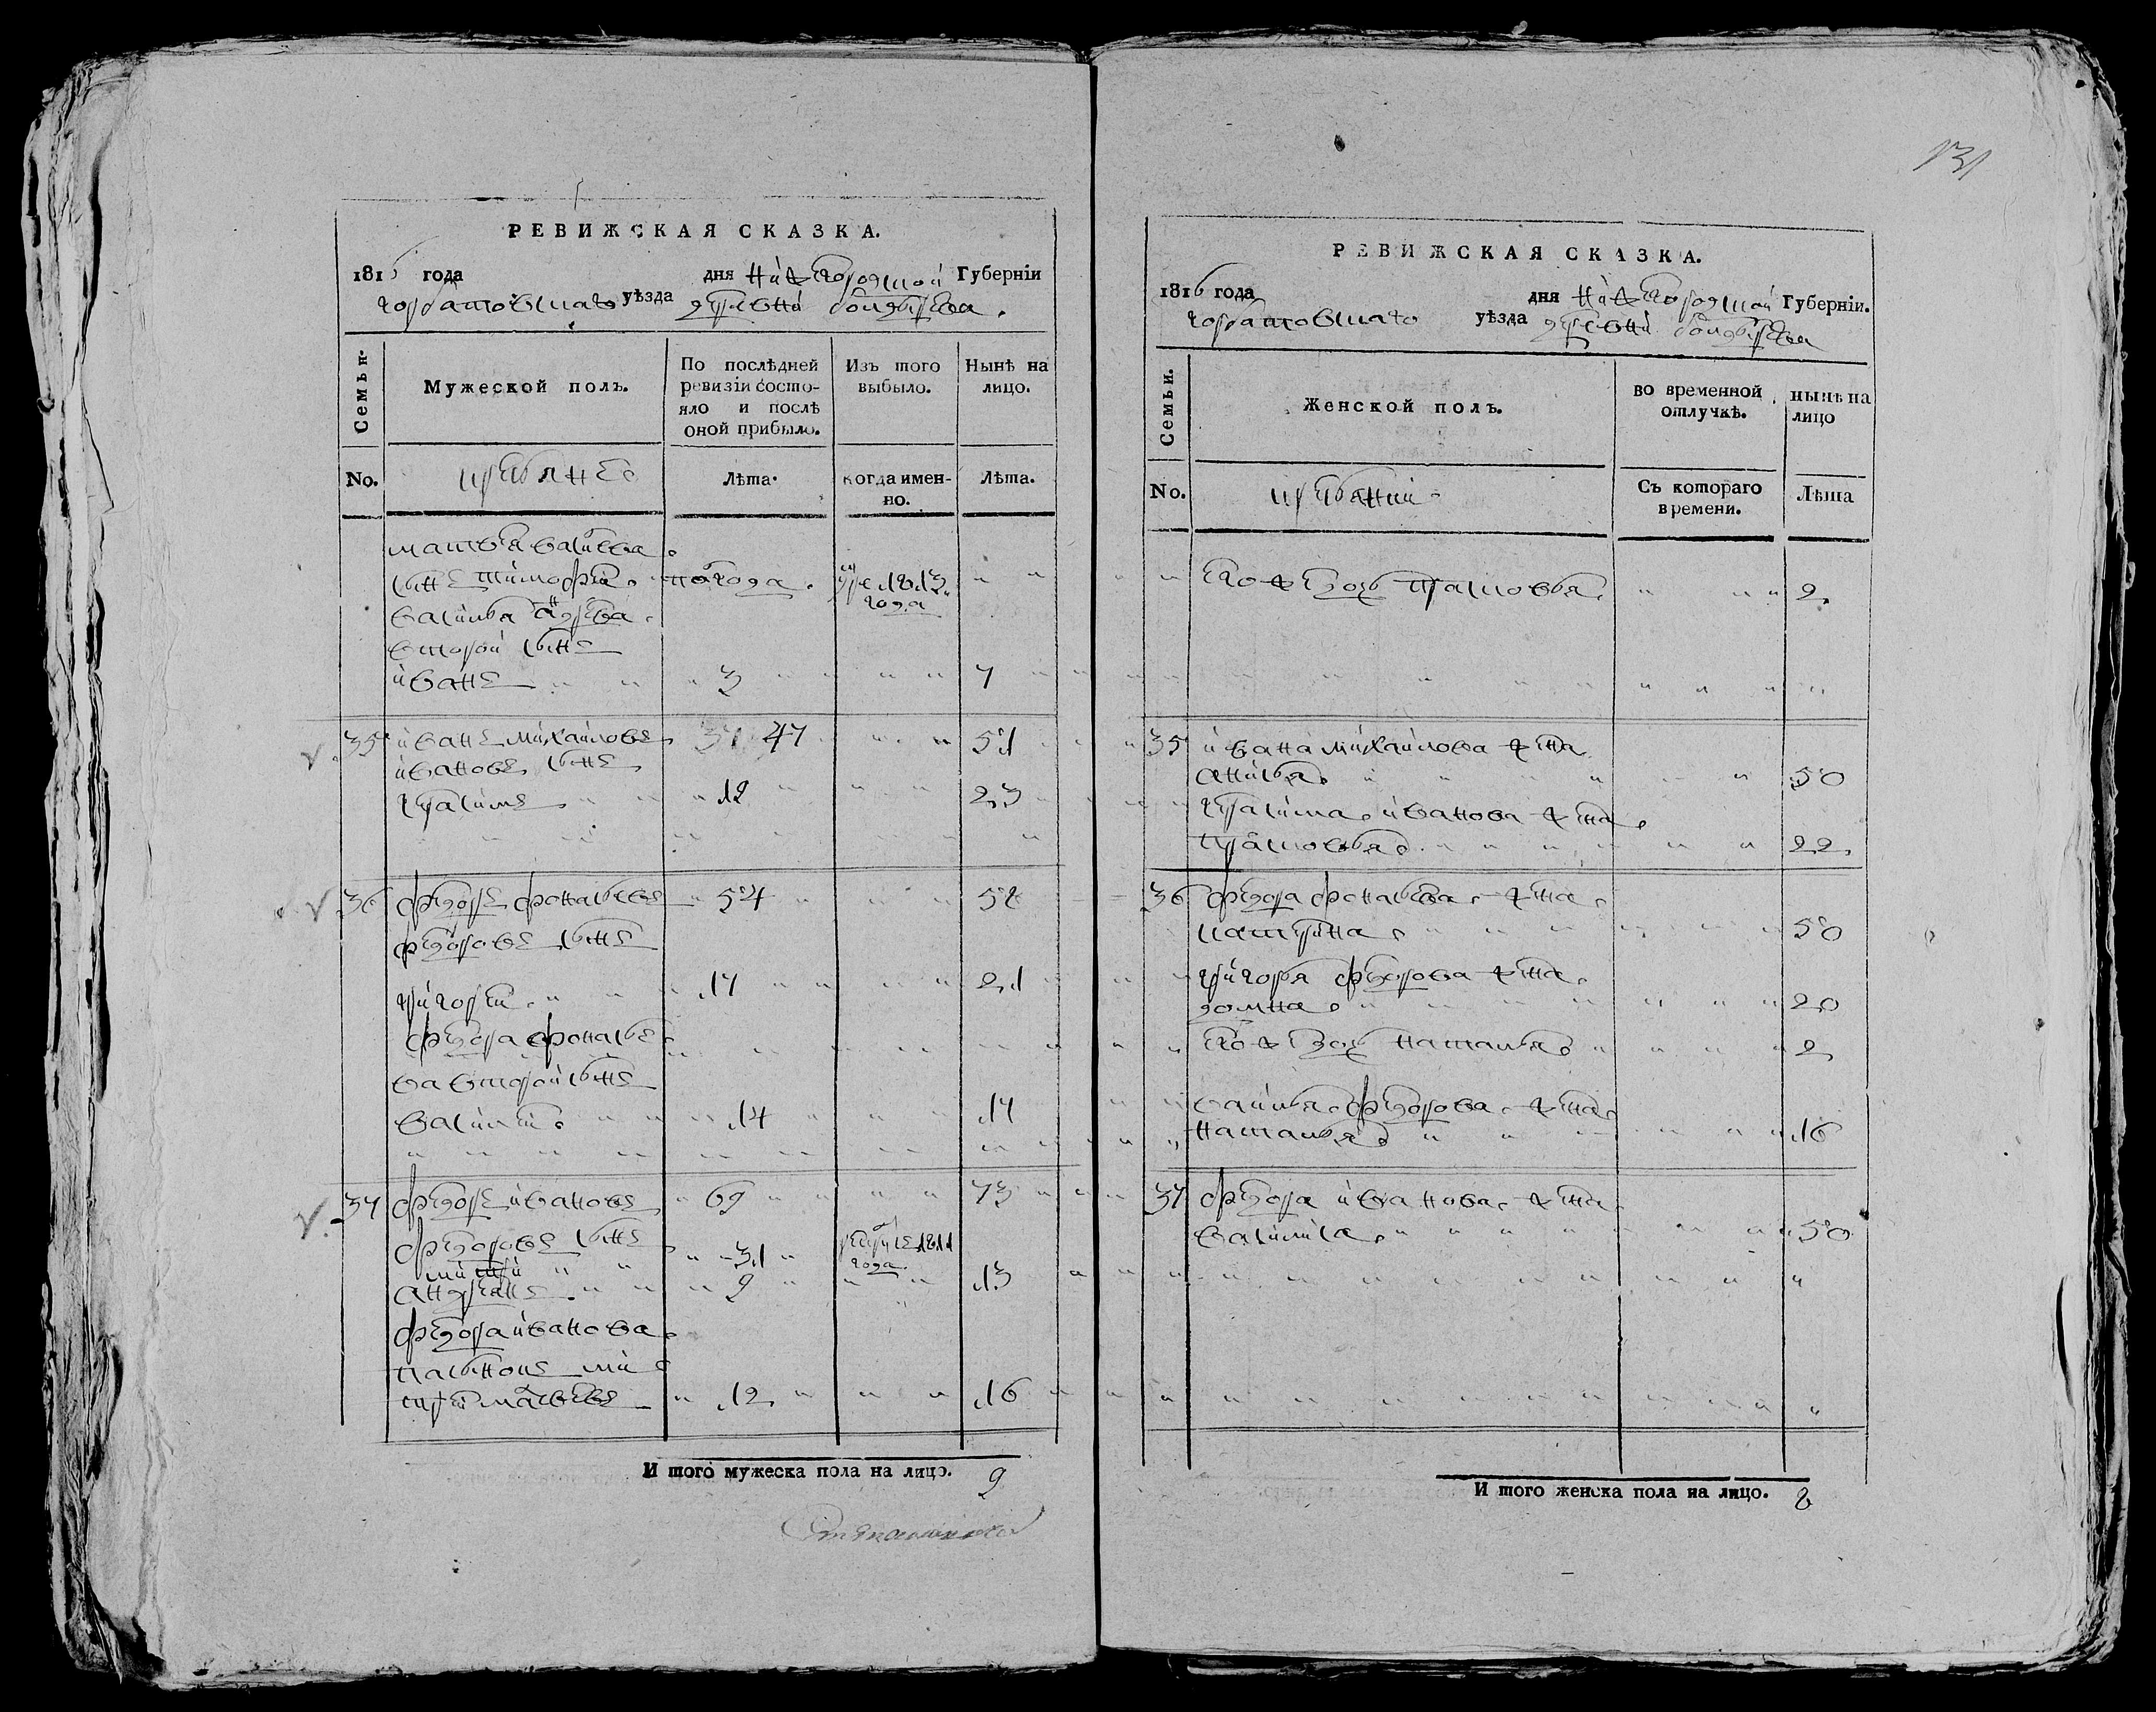 131
РЕВИЖСКАЯ СКАЗКА.
1816 года дня нижегородской Губерніи
горбатовскаго уѣзда деревни
Семьи.
Мужеской полъ.
По послѣдней ревизіи состояло и послѣ оной прибыло.
Изъ того выбыло.
Нынѣ на лицо.
No.
крестьяне
Лѣта.
когда именно.
Лѣта.
матвея васильева
сынъ тимофей полгода 1813
года
василья андреева
второй сынъ
иванъ 3 7
35 иванъ михайловъ 47 51
ивановъ сынъ
герасимъ 19 23
36 федоръ афонасьевъ 54 58
федоровъ сынъ
григорей 17 21
федора афонасье
ва второй сынъ
василей 14 17
37 федоръ ивановъ 69 73
федоровъ сынъ
митрей 31 1811
года
андреянъ 9 13
федора иванова
пасынокъ ми
трей 12 16
И того мужеска пола на лицо. 9
РЕВИЖСКАЯ СКАЗКА.
1816 года дня нижегородской Губерніи.
горбатовскаго уѣзда деревни
Семьи.
Женской полъ.
во временной отлучкѣ.
нынѣ на лицо
No.
Съ котораго времени.
Лѣта
его ж дочь прасковья 2
35 ивана михайлова жена
анисья 50
герасима иванова жена
прасковья 22
36 федора афонасьева жена
катерина 50
григорья федорова жена
домна 20
его ж дочь наталья 2
василья федорова жена
наталья 16
37 федора иванова жена
василиса 50
И того женска пола на лицо. 8